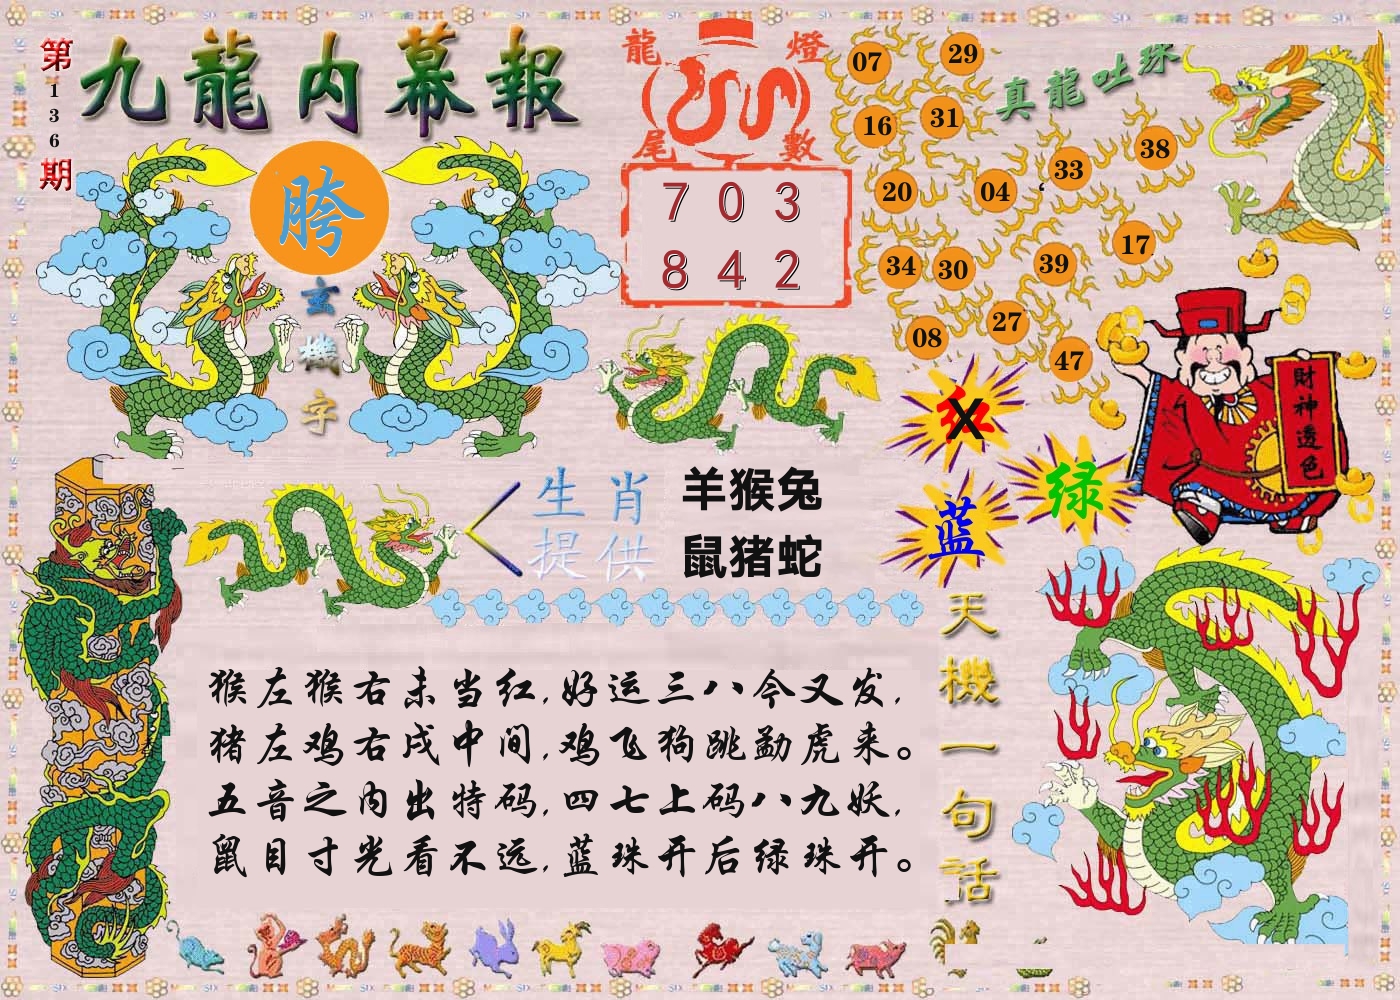 第136期
九龍内幕報
胯
玄機字
龍燈
尾數
7 0 3
8 4 2
真龍吐珠
07
29
16
31
33
38
20
04
34
30
39
17
08
27
47
财神透色
红
X
绿
蓝
生肖
提供
羊猴兔
鼠猪蛇
猴左猴右未当红,好运三八今又发,
猪左鸡右戌中间,鸡飞狗跳勐虎来。
五音之内出特码,四七上码八九妖,
鼠目寸光看不远,蓝珠开后绿珠开。
天機一句話